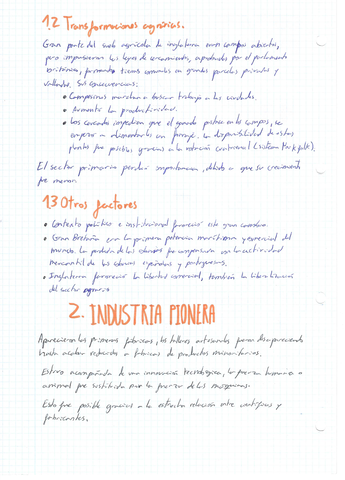 1.2 Transformaciones agrarias.
Gran parte del suelo agrícola de Inglaterra eran campos abiertos,
pero impusieron las leyes de cercamiento, aprobadas por el parlamento
británico, formando tierras comunales en grandes parcelas privadas y
valladas. Sus consecuencias:
• Campesinos marchan a buscar trabajo a las ciudades.
• Aumentó la productividad.
• Los cercados impedían que el ganado pastase en los campos, se
empezó a alimentarlos con forraje, la disponibilidad de estas
plantas fue posible gracias a la rotación cuatrienal (sistema Norfolk).
El sector primario perdió importancia, debido a que su crecimiento
fue menor.
1.3 Otros factores
• Contexto político e institucional favoreció este gran cambio.
• Gran Bretaña era la primera potencia marítima y comercial del
mundo. La perdida de las colonias fue compensada con la actividad
mercantil de las colonias españolas y portuguesas.
• Inglaterra favoreció la libertad comercial, también la liberalización
del sector agrario
2. INDUSTRIA PIONERA
Aparecieron las primeras fábricas, los talleres artesanales fueron desapareciendo
hasta acabar reducidos a fábricas de productos minoritarios.
Estuvo acompañada de una innovación tecnológica, la fuerza humana o
animal fue sustituida por la fuerza de las máquinas.
Esto fue posible gracias a la estrecha relación entre científicos y
fabricantes.